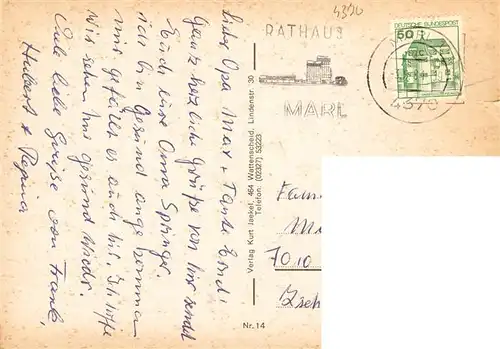 4370
RATHAUS
MARL
DEUTSCHE BUNDESPOST
50
4370
Liebe Opa Max + Tante Erni!
Ganz herzliche Grüße von hier sendet
Euch Eure Oma Springer.
ich bin gesund angekommen
mir gefällt es auch hier, ich hoffe
wir sehen uns gesund wieder.
Viele liebe Grüße von Frank,
Hubert + Regina
Verlag Kurt Jaekel, 464 Wattenscheid, Lindenstr. 30
Telefon: (02327) 53223
Nr. 14
Fam
7010